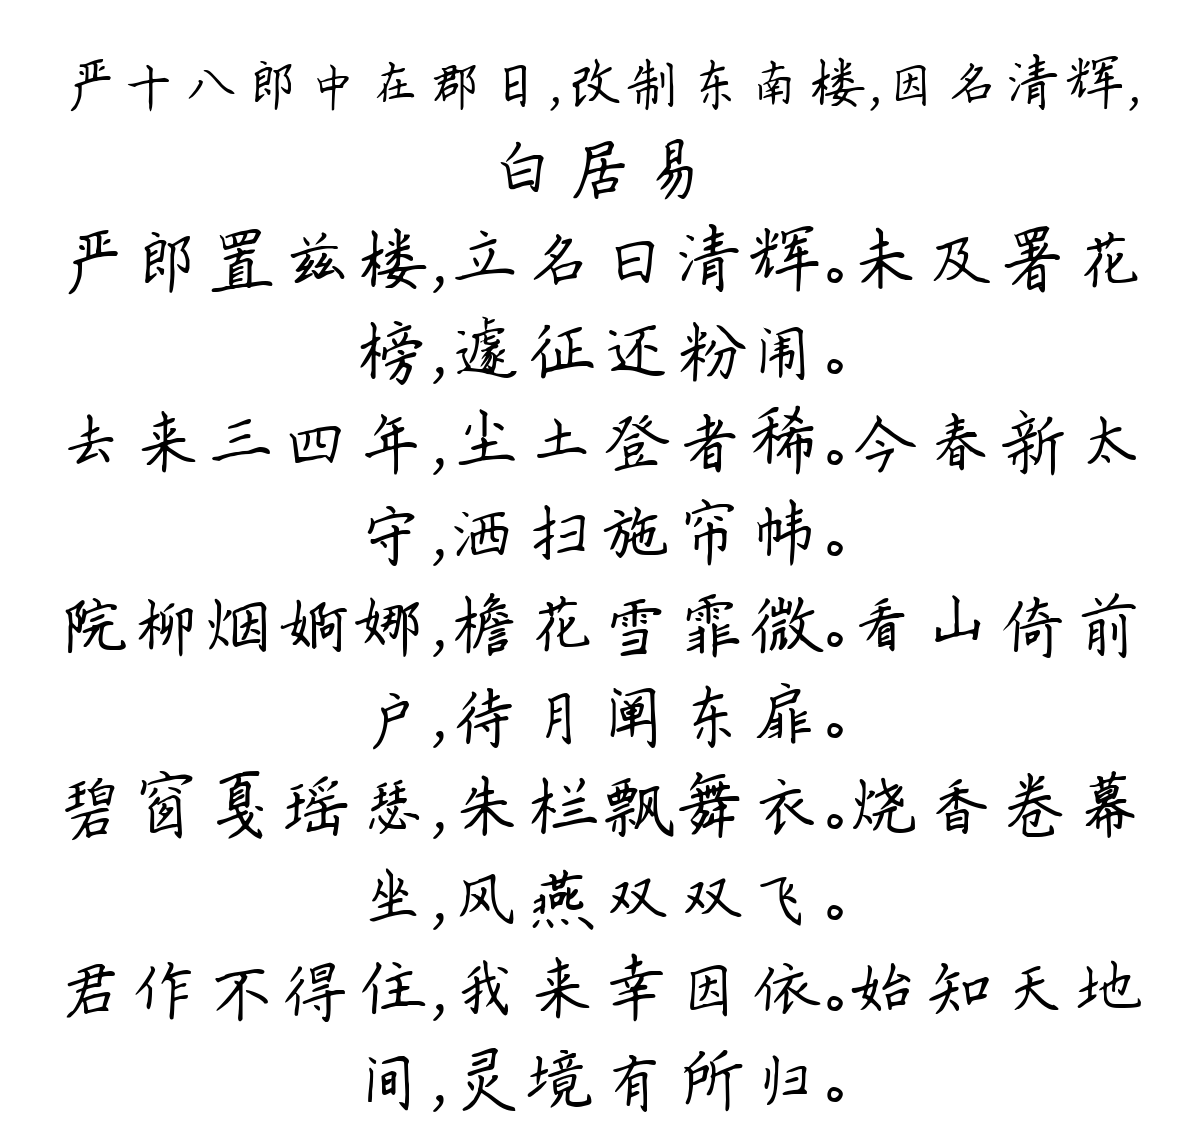 严十八郎中在郡日,改制东南楼,因名清辉,
白居易
严郎置兹楼,立名曰清辉。未及署花
榜,遽征还粉闱。
去来三四年,尘土登者稀。今春新太
守,洒扫施帘帏。
院柳烟婀娜,檐花雪霏微。看山倚前
户,待月阐东扉。
碧窗戛瑶瑟,朱栏飘舞衣。烧香卷幕
坐,风燕双双飞。
君作不得住,我来幸因依。始知天地
间,灵境有所归。